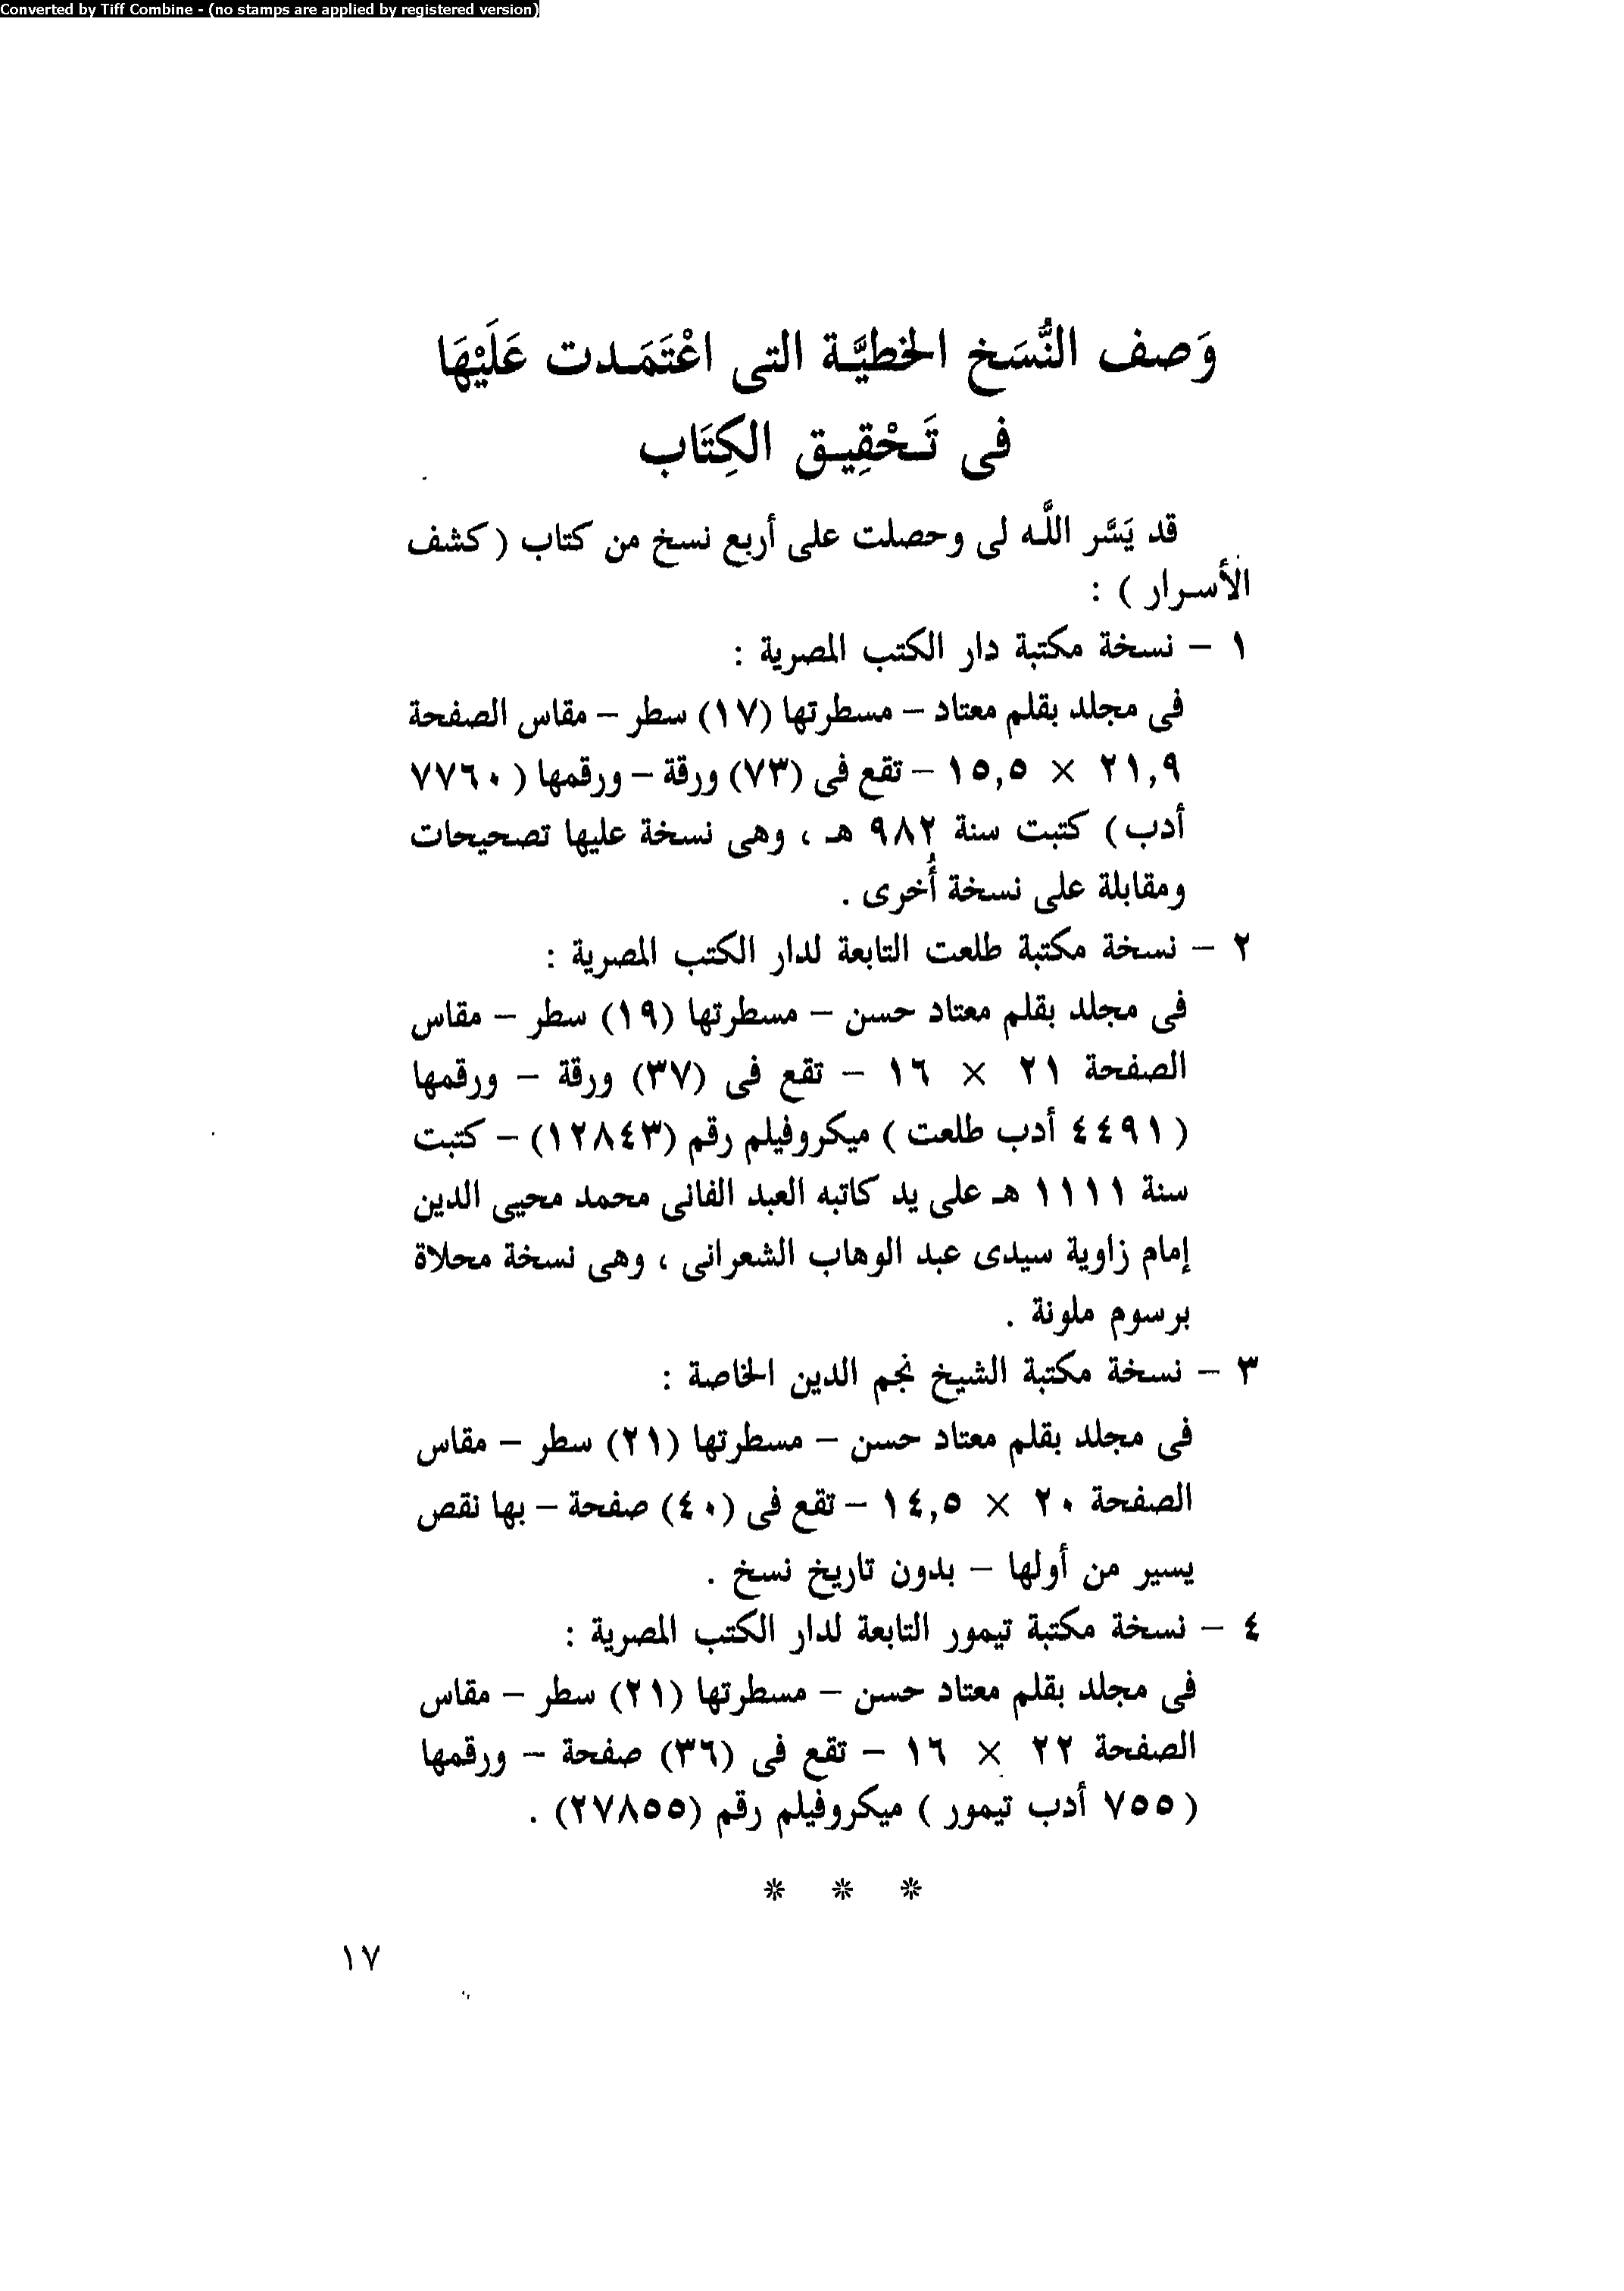 Converted by Tiff Combine - (no stamps are applied by registered version)
وَصف النُّسَخ الخطيَّة التى اعْتَمَدت عَلَيْهَا
فى تَحْقِيق الكِتَاب
قد يَسَّر اللَّه لى وحصلت على أربع نسخ من كتاب ( كشف
الأسرار ) :
١ – نسخة مكتبة دار الكتب المصرية :
فى مجلد بقلم معتاد – مسطرتها (١٧) سطر – مقاس الصفحة
٢١,٩ × ١٥,٥ – تقع فى (٧٣) ورقة – ورقمها ( ٧٧٦٠
أدب) كتبت سنة ٩٨٢ هـ ، وهى نسخة عليها تصحيحات
ومقابلة على نسخة أُخرى .
٢ – نسخة مكتبة طلعت التابعة لدار الكتب المصرية :
فى مجلد بقلم معتاد حسن – مسطرتها (١٩) سطر – مقاس
الصفحة ٢١ × ١٦ – تقع فى (٣٧) ورقة – ورقمها
( ٤٤٩١ أدب طلعت ) ميكروفيلم رقم (١٢٨٤٣) – كتبت
سنة ١١١١ هـ على يد كاتبه العبد الفانى محمد محيى الدين
إمام زاوية سيدى عبد الوهاب الشعرانى ، وهى نسخة محلاة
برسوم ملونة .
٣ – نسخة مكتبة الشيخ نجم الدين الخاصة :
فى مجلد بقلم معتاد حسن – مسطرتها (٢١) سطر – مقاس
الصفحة ٢٠ × ١٤,٥ – تقع فى (٤٠) صفحة – بها نقص
يسير من أولها – بدون تاريخ نسخ .
٤ – نسخة مكتبة تيمور التابعة لدار الكتب المصرية :
فى مجلد بقلم معتاد حسن – مسطرتها (٢١) سطر – مقاس
الصفحة ٢٢ × ١٦ – تقع فى (٣٦) صفحة – ورقمها
( ٧٥٥ أدب تيمور ) ميكروفيلم رقم (٢٧٨٥٥) .
* * *
١٧